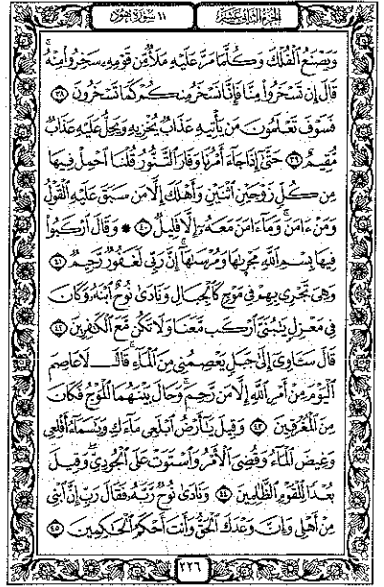 الجزء الثاني عشر
١١ سورة هود
وَيَصْنَعُ ٱلْفُلْكَ وَكُلَّمَا مَرَّ عَلَيْهِ مَلَأٌ مِّن قَوْمِهِۦ سَخِرُوا۟ مِنْهُ ۚ
قَالَ إِن تَسْخَرُوا۟ مِنَّا فَإِنَّا نَسْخَرُ مِنكُمْ كَمَا تَسْخَرُونَ ٣٨
فَسَوْفَ تَعْلَمُونَ مَن يَأْتِيهِ عَذَابٌ يُخْزِيهِ وَيَحِلُّ عَلَيْهِ عَذَابٌ
مُّقِيمٌ ٣٩ حَتَّىٰٓ إِذَا جَآءَ أَمْرُنَا وَفَارَ ٱلتَّنُّورُ قُلْنَا ٱحْمِلْ فِيهَا
مِن كُلٍّ زَوْجَيْنِ ٱثْنَيْنِ وَأَهْلَكَ إِلَّا مَن سَبَقَ عَلَيْهِ ٱلْقَوْلُ
وَمَنْ ءَامَنَ ۚ وَمَآ ءَامَنَ مَعَهُۥٓ إِلَّا قَلِيلٌ ٤٠ ۞ وَقَالَ ٱرْكَبُوا۟
فِيهَا بِسْمِ ٱللَّهِ مَجْر۪ىٰهَا وَمُرْسَىٰهَآ ۚ إِنَّ رَبِّى لَغَفُورٌ رَّحِيمٌ ٤١
وَهِىَ تَجْرِى بِهِمْ فِى مَوْجٍ كَٱلْجِبَالِ وَنَادَىٰ نُوحٌ ٱبْنَهُۥ وَكَانَ
فِى مَعْزِلٍ يَٰبُنَىَّ ٱرْكَب مَّعَنَا وَلَا تَكُن مَّعَ ٱلْكَٰفِرِينَ ٤٢
قَالَ سَـَٔاوِىٓ إِلَىٰ جَبَلٍ يَعْصِمُنِى مِنَ ٱلْمَآءِ ۚ قَالَ لَا عَاصِمَ
ٱلْيَوْمَ مِنْ أَمْرِ ٱللَّهِ إِلَّا مَن رَّحِمَ ۚ وَحَالَ بَيْنَهُمَا ٱلْمَوْجُ فَكَانَ
مِنَ ٱلْمُغْرَقِينَ ٤٣ وَقِيلَ يَٰٓأَرْضُ ٱبْلَعِى مَآءَكِ وَيَٰسَمَآءُ أَقْلِعِى
وَغِيضَ ٱلْمَآءُ وَقُضِىَ ٱلْأَمْرُ وَٱسْتَوَتْ عَلَى ٱلْجُودِىِّ ۖ وَقِيلَ
بُعْدًا لِّلْقَوْمِ ٱلظَّٰلِمِينَ ٤٤ وَنَادَىٰ نُوحٌ رَّبَّهُۥ فَقَالَ رَبِّ إِنَّ ٱبْنِى
مِنْ أَهْلِى وَإِنَّ وَعْدَكَ ٱلْحَقُّ وَأَنتَ أَحْكَمُ ٱلْحَٰكِمِينَ ٤٥
٢٢٦